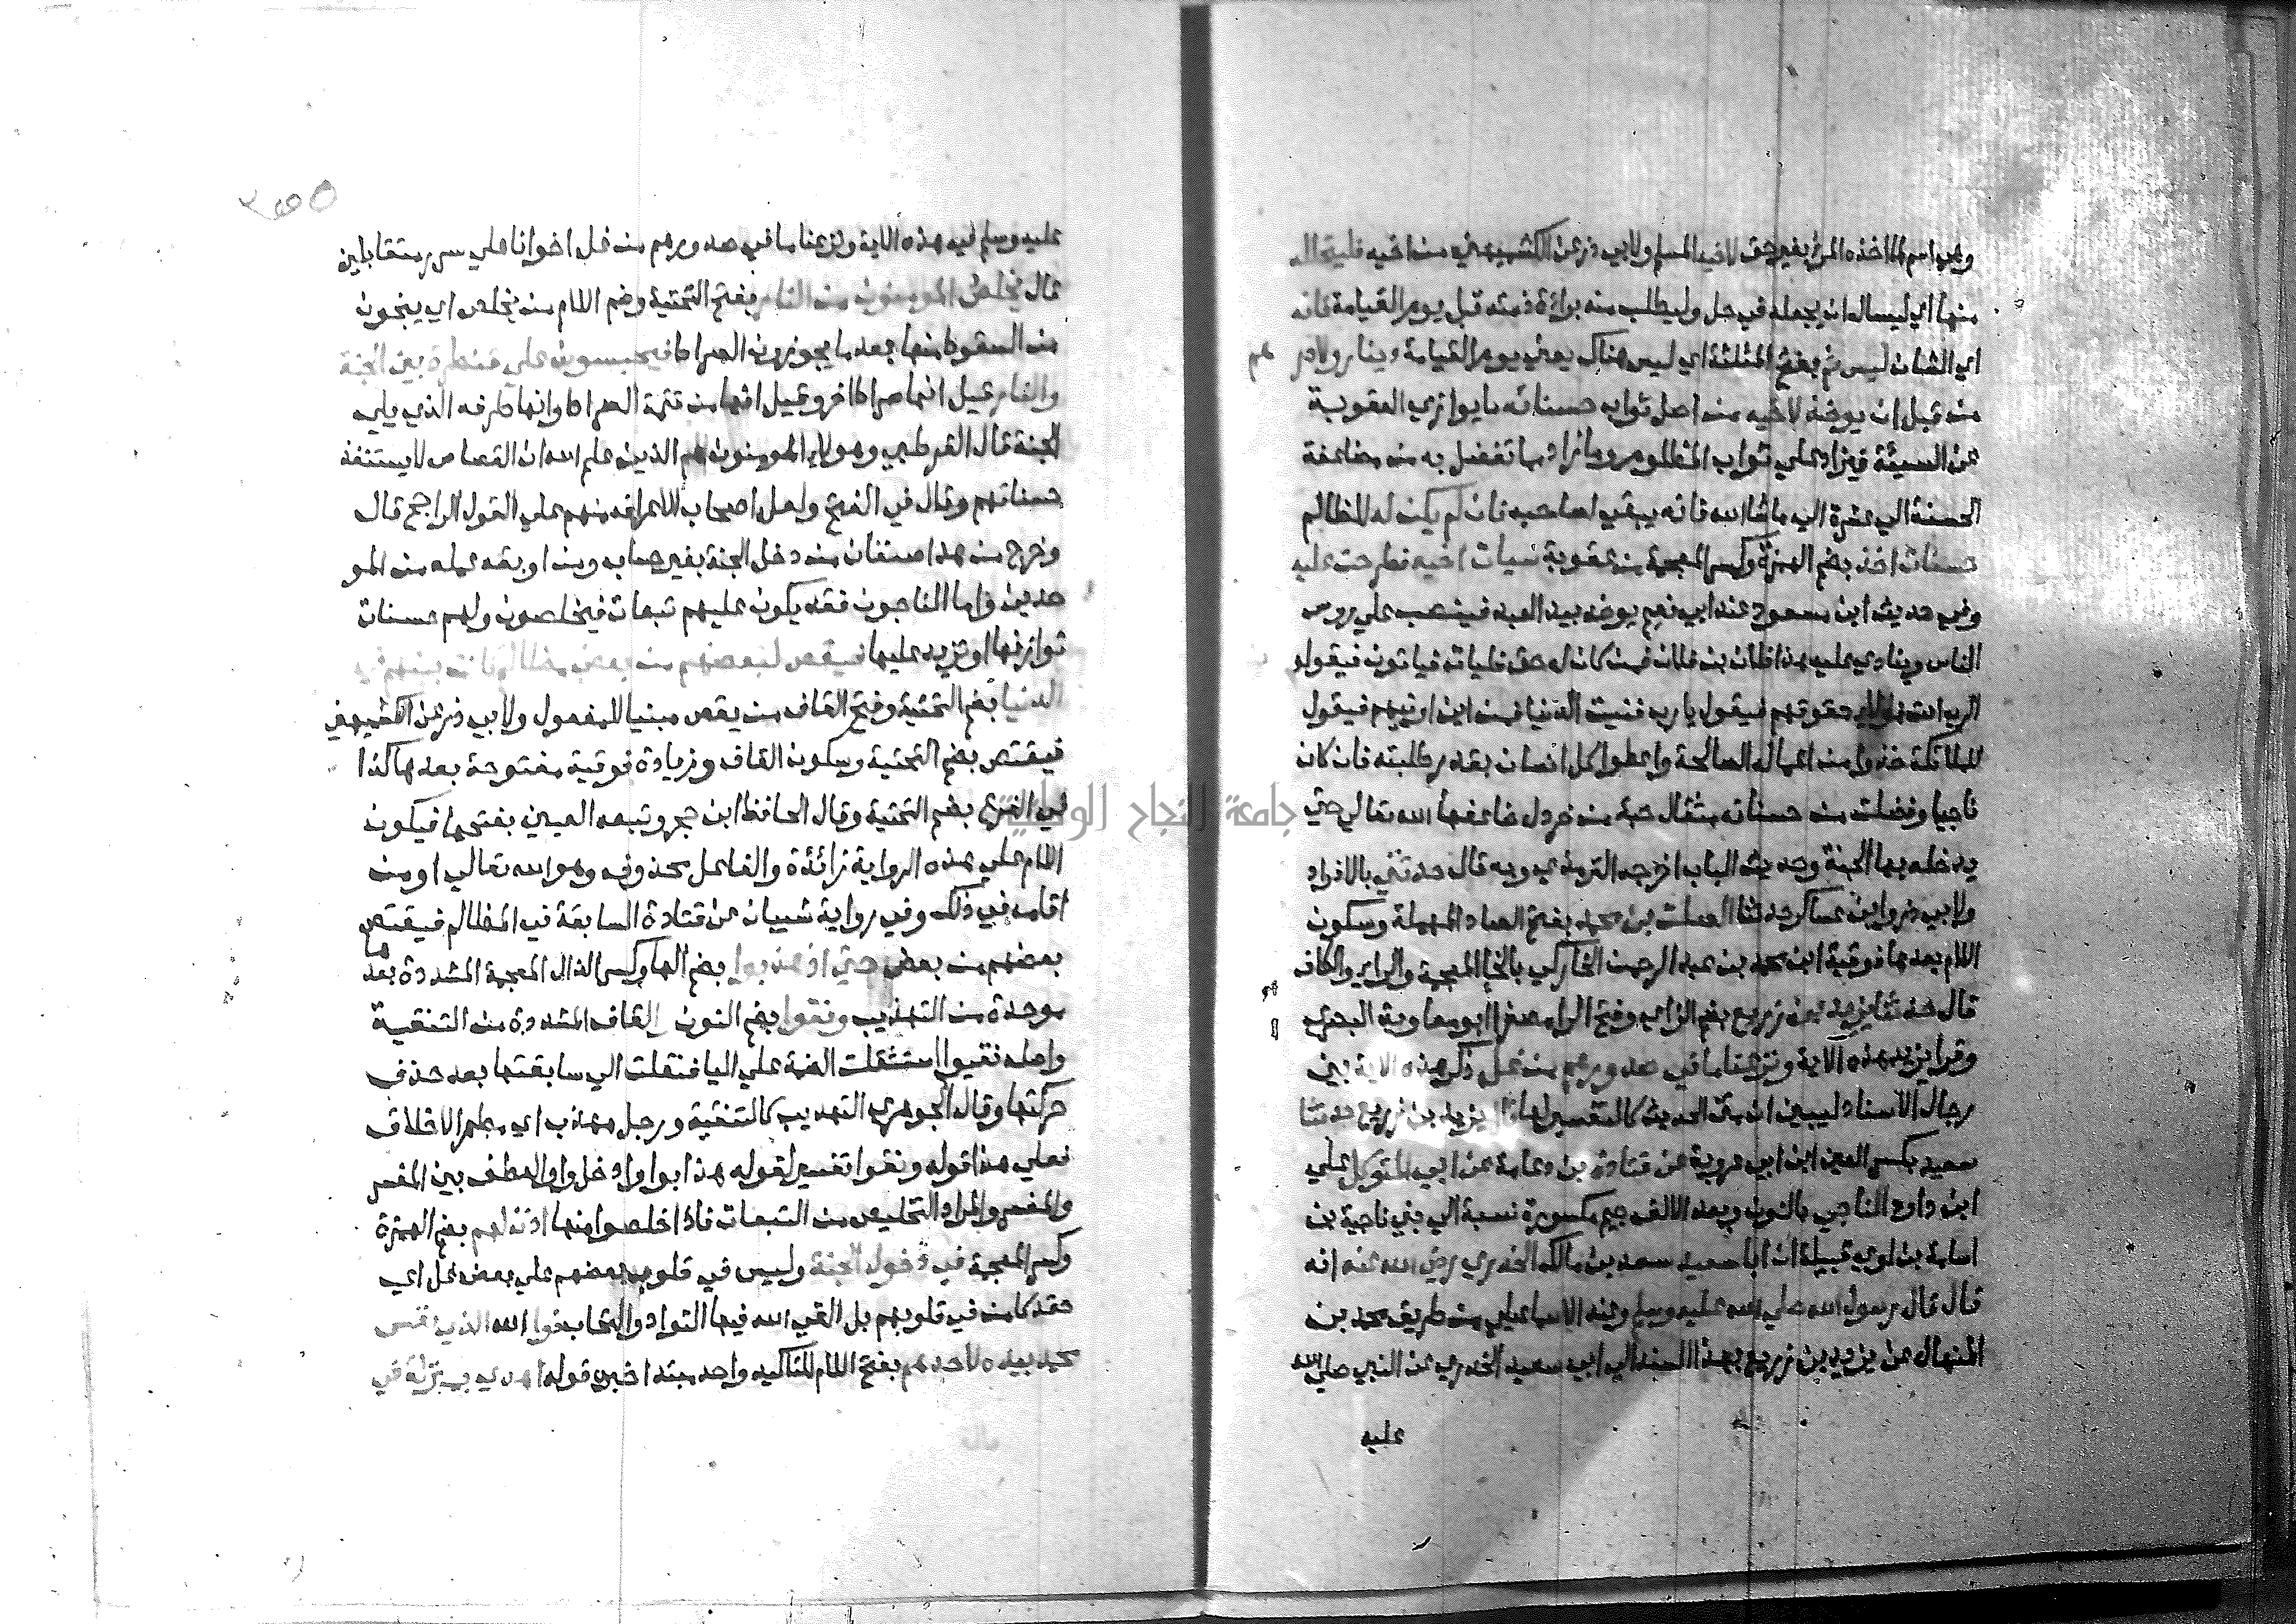 وهي اسم لما اخذه المرء بغير حق لاخيه المسلم ولابي ذر عن الكشميهني من اخيه فليتحلله
منها اي ليساله ان يجعله في حل وليطلب منه براءة ذمته قبل يوم القيامة فانه
اي الشان ليس ثم بفتح المثلثة اي ليس هناك يعني يوم القيامة دينار ولا در هم
من قبل ان يوخذ لاخيه من اصل ثواب حسناته ما يوازي العقوبة
عن السيئة فيزاد علي ثواب المظلوم وما زاد مما تفضل به من مضاعفة
الحسنة الي عشرة الي ما شا الله فانه يبقي لصاحبه فان لم يكن له للظالم
حسنات اخذ بضم الهمزة وكسر المعجمة من عقوبة سيات اخيه فطرحت عليه
وفي حديث ابن مسعود عند ابي نعيم يوخذ بيد العبد فينصب علي رووس
الناس وينادي عليه هذا فلان بن فلان فمن كان له حق فليات فياتون فيقول
الرب ات هولاي حقوقهم فيقول يا رب فنيت الدنيا فمن اين اوتيهم فيقول
للملائكة خذوا من اعماله الصالحة واعطوا كل انسان بقدر طلبته فان كان
ناجيا وفضلت من حسناته مثقال حبة من خردل ضاعفها الله تعالي حتي
يدخله بها الجنة وحديث الباب اخرجه الترمذي وبه قال حدثني بالافراد
ولابي ذر وابن عساكر حدثنا الصلت بن محمد بفتح الصاد المهملة وسكون
اللام بعدها فوقية ابن محمد بن عبد الرحمن الخاركي بالخا المعجمة والراي والكاف
قال حدثنا يزيد بن زريع بضم الزاي وفتح الرا مصغرا ابو معاوية البصري
وقرا يزيد هذه الاية ونزعنا ما في صدورهم من غل ذكر هذه الاية بين
رجال الاسناد ليبين ان متن الحديث كالتفسير لها قال يزيد بن زريع حدثنا
سعيد بكسر العين ابن ابي عروبة عن قتادة بن دعامة عن ابي المتوكل علي
ابن داود الناجي بالنون وبعد الالف جيم مكسورة نسبة الي بني ناجية بن
اسامة بن لوي قبيلة ان ابا سعيد سعد بن مالك الخدري رضي الله عنه انه
قال قال رسول الله صلي الله عليه وسلم وعند الاسماعيلي من طريق محمد بن
المنهال عن يزيد بن زريع بهذا السند الي ابي سعيد الخدري عن النبي صلي الله
عليه
عليه وسلم في هذه الاية ونزعنا ما في صدورهم من غل اخوانا علي سرر متقابلين
قال يخلص المومنون من النار بفتح التحتية وضم اللام من يخلص اي ينجون
من السقوط منها بعد ما يجوزون الصراط فيحبسون علي قنطرة بين الجنة
والنار قيل انها صراط اخر وقيل انها من تتمة الصراط وانها طرفه الذي يلي
الجنة قال القرطبي وهولاي المومنون هم الذين علم الله ان القصاص لا يستنفذ
حسناتهم وقال في الفتح ولعل اصحاب الاعراف منهم علي القول الراجح قال
وخرج من هذا صنفان من دخل الجنة بغير حساب ومن اوبقه عمله من المو
حدين واما الناجون فقد يكون عليهم تبعات فيخلصون ولهم حسنات
توازنها او تزيد عليها فيقص لبعضهم من بعض مظالم كانت بينهم في
الدنيا بضم التحتية وفتح القاف من يقص مبنيا للمفعول ولابي ذر عن الكشميهني
فيقتص بضم التحتية وسكون القاف وزيادة فوقية مفتوحة بعدها كذا
في الفرع بضم التحتية وقال الحافظ ابن حجر وتبعه العيني بفتحها فيكون
اللام علي هذه الرواية زائدة والفاعل محذوف وهو الله تعالي او من
اقامه في ذلك وفي رواية شيبان عن قتادة السابقة في المظالم فيقتص
بعضهم من بعض حتي اذا هذبوا بضم الها وكسر الذال المعجمة المشددة بعدها
موحدة من التهذيب ونقوا بضم النون القاف المشددة من التنقية
واصله نقيوا استثقلت الضمة علي اليا فنقلت الي سابقتها بعد حذف
حركتها وقال الجوهري التهذيب كالتنقية ورجل مهذب اي مطهر الاخلاق
فعلي هذا قوله ونقوا تفسير لقوله هذبوا وادخل واو العطف بين المفسر
والمفسر والمراد التخليص من التبعات فاذا خلصوا منها اذن لهم بضم الهمزة
وكسر المعجمة في دخول الجنة وليس في قلوب بعضهم علي بعض غل اي
حقد كامن في قلوبهم بل القي الله فيها التواد والتحاب فوا الله الذي نفس
محمد بيده لاحدهم بفتح اللام للتاكيد واحد مبتدا خبره قوله اهدي بمنزله في
جامعة النجاح الوطنية